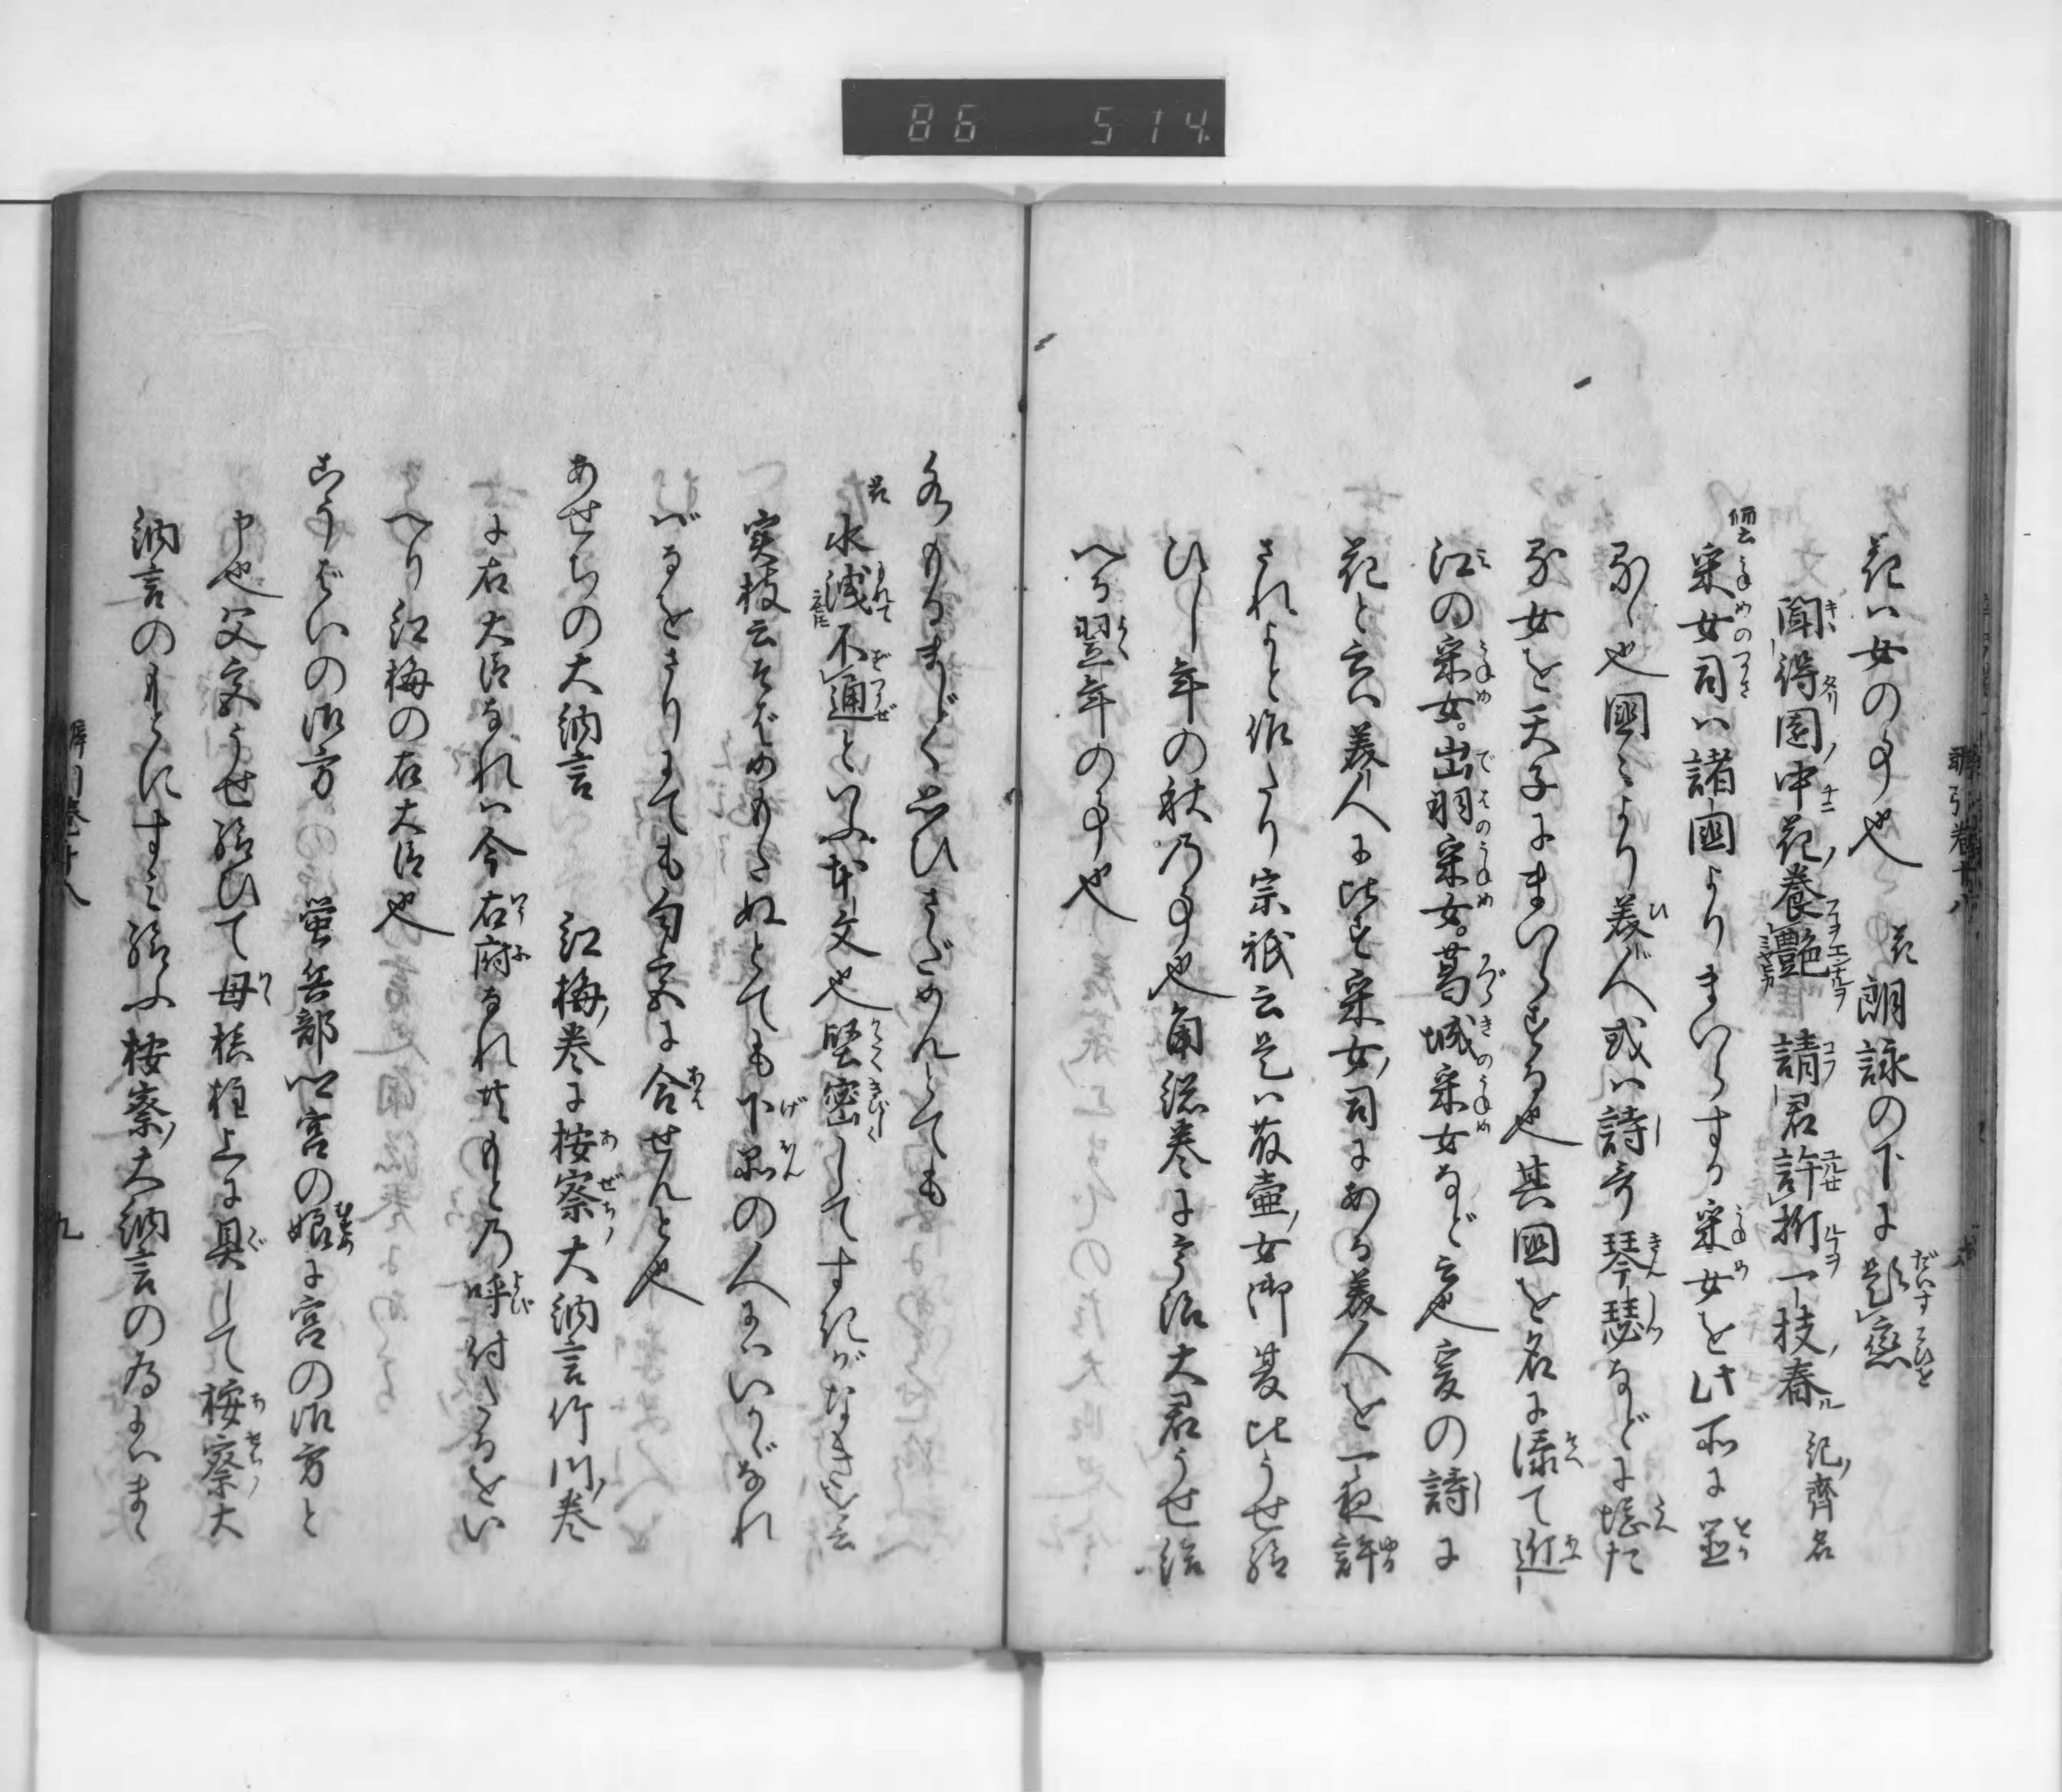 86 514
花ハ女の事也 花 朗詠の下に題恋
聞得園中花養艶 請君許折一枝春 紀齊名
采女司ハ諸国よりまいらする采女を此所に置
るゝ也国〻より美人或ハ詩哥琴瑟などに堪た
る女を天子にまいらする也其国を名に添て近
江の采女。出羽采女。葛城采女など云也爰の詩に
花と云ハ美人に比す采女司にある美人を一夜許
されよと作たり宗祇云是ハ藤壷女御夏比うせ給
ひし年の秋乃事也角総巻に宇治大君うせ給
へる翌年の事也
水もるまじく思ひさだめんとても
水洩不通といふ本文也堅密してすきがなきを云
実枝云そばめもたぬとても下品の人にハいかゞなれ
ばるをさりにても匂宮に合せんと也
あせちの大納言 紅梅巻に按察大納言竹川巻
に右大臣なれハ今右府なれ共もと乃呼付たるをい
へり紅梅の右大臣也
こうばいの御方 蛍兵部卿宮の娘に宮の御方と
申也父宮うせ給ひて母槙柱上に具して按察大
納言のもとにすミ給ふ按察大納言の為にハまゝ
九